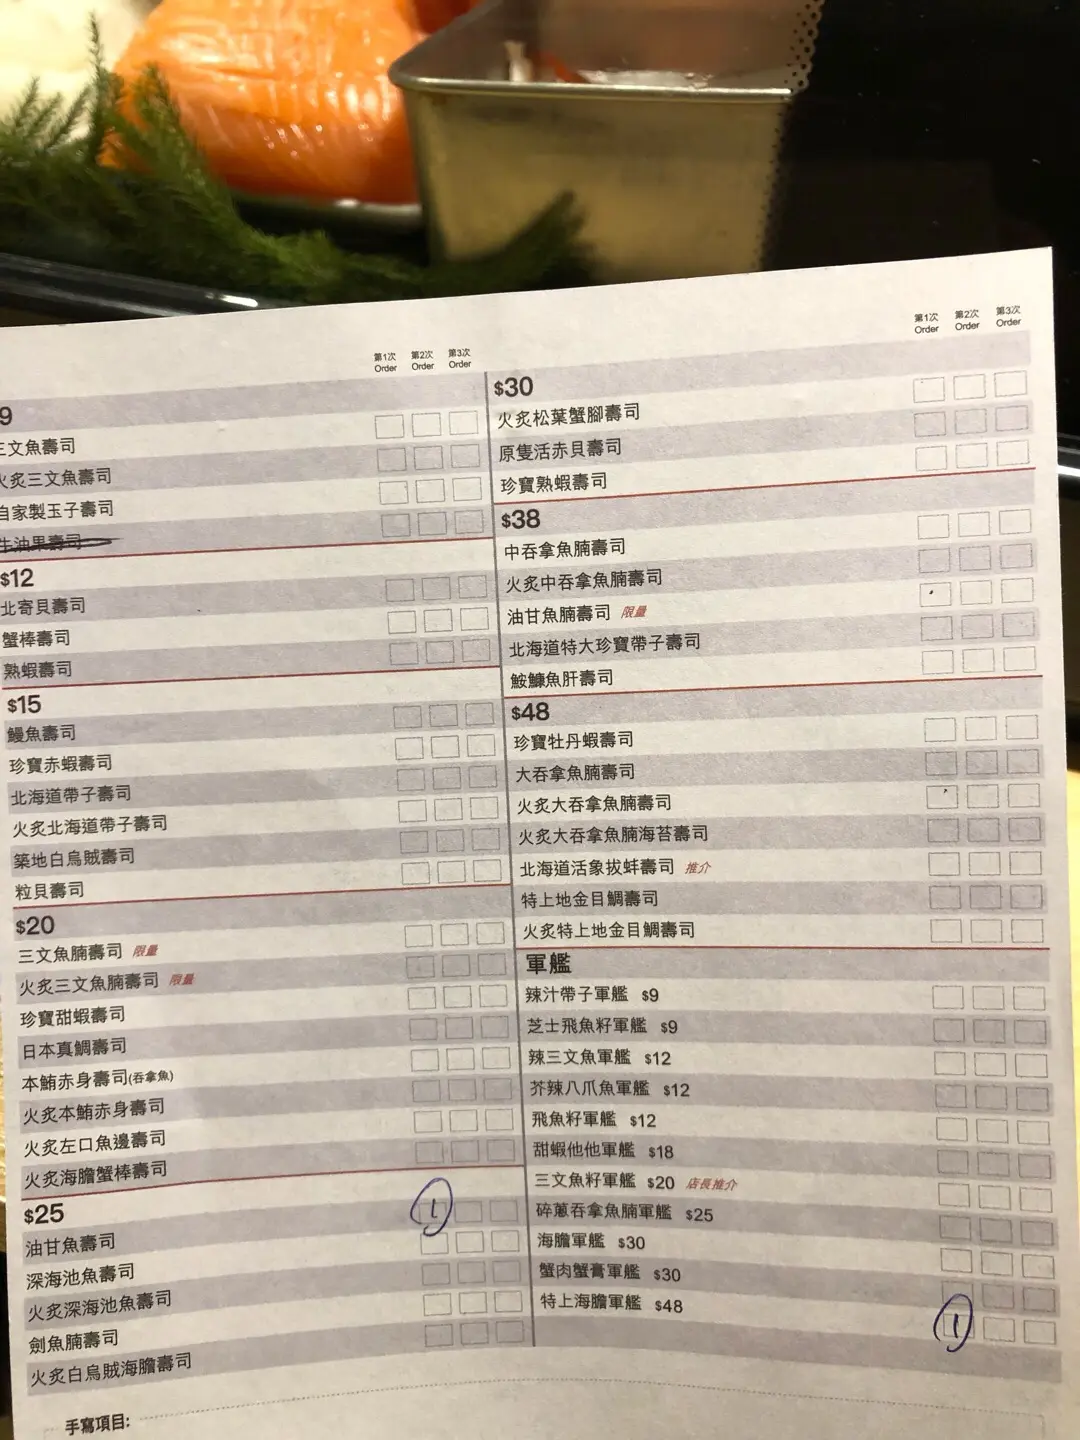 第1次 第2次 第3次
Order Order Order
9
三文魚壽司
火炙三文魚壽司
自家製玉子壽司
牛油果壽司
$12
北寄貝壽司
蟹棒壽司
熟蝦壽司
$15
鰻魚壽司
珍寶赤蝦壽司
北海道帶子壽司
火炙北海道帶子壽司
築地白烏賊壽司
粒貝壽司
$20
三文魚腩壽司 限量
火炙三文魚腩壽司 限量
珍寶甜蝦壽司
日本真鯛壽司
本鮪赤身壽司(吞拿魚)
火炙本鮪赤身壽司
火炙左口魚邊壽司
火炙海膽蟹棒壽司
$25
1
油甘魚壽司
深海池魚壽司
火炙深海池魚壽司
劍魚腩壽司
火炙白烏賊海膽壽司
手寫項目:
第1次 第2次 第3次
Order Order Order
$30
火炙松葉蟹腳壽司
原隻活赤貝壽司
珍寶熟蝦壽司
$38
中吞拿魚腩壽司
火炙中吞拿魚腩壽司
油甘魚腩壽司 限量
北海道特大珍寶帶子壽司
鮟鱇魚肝壽司
$48
珍寶牡丹蝦壽司
大吞拿魚腩壽司
火炙大吞拿魚腩壽司
火炙大吞拿魚腩海苔壽司
北海道活象拔蚌壽司 推介
特上地金目鯛壽司
火炙特上地金目鯛壽司
軍艦
辣汁帶子軍艦 $9
芝士飛魚籽軍艦 $9
辣三文魚軍艦 $12
芥辣八爪魚軍艦 $12
飛魚籽軍艦 $12
甜蝦他他軍艦 $18
三文魚籽軍艦 $20 店長推介
碎蔥吞拿魚腩軍艦 $25
海膽軍艦 $30
蟹肉蟹膏軍艦 $30
特上海膽軍艦 $48
1